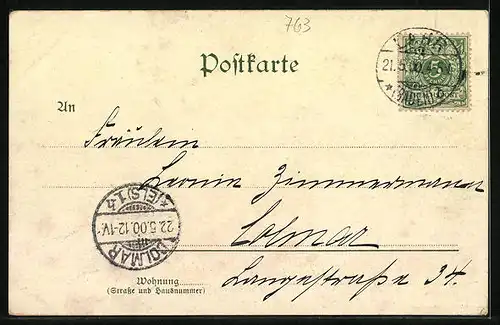 763
LAHR
21.5.00
* (BADEN) *
5
Postkarte
An
Fräulein
Leonie Zimmermann
Colmar
Langestraße 34.
COLMAR
22.5.00.12-1V.
*(ELS)1.h
Wohnung
(Straße und Hausnummer)